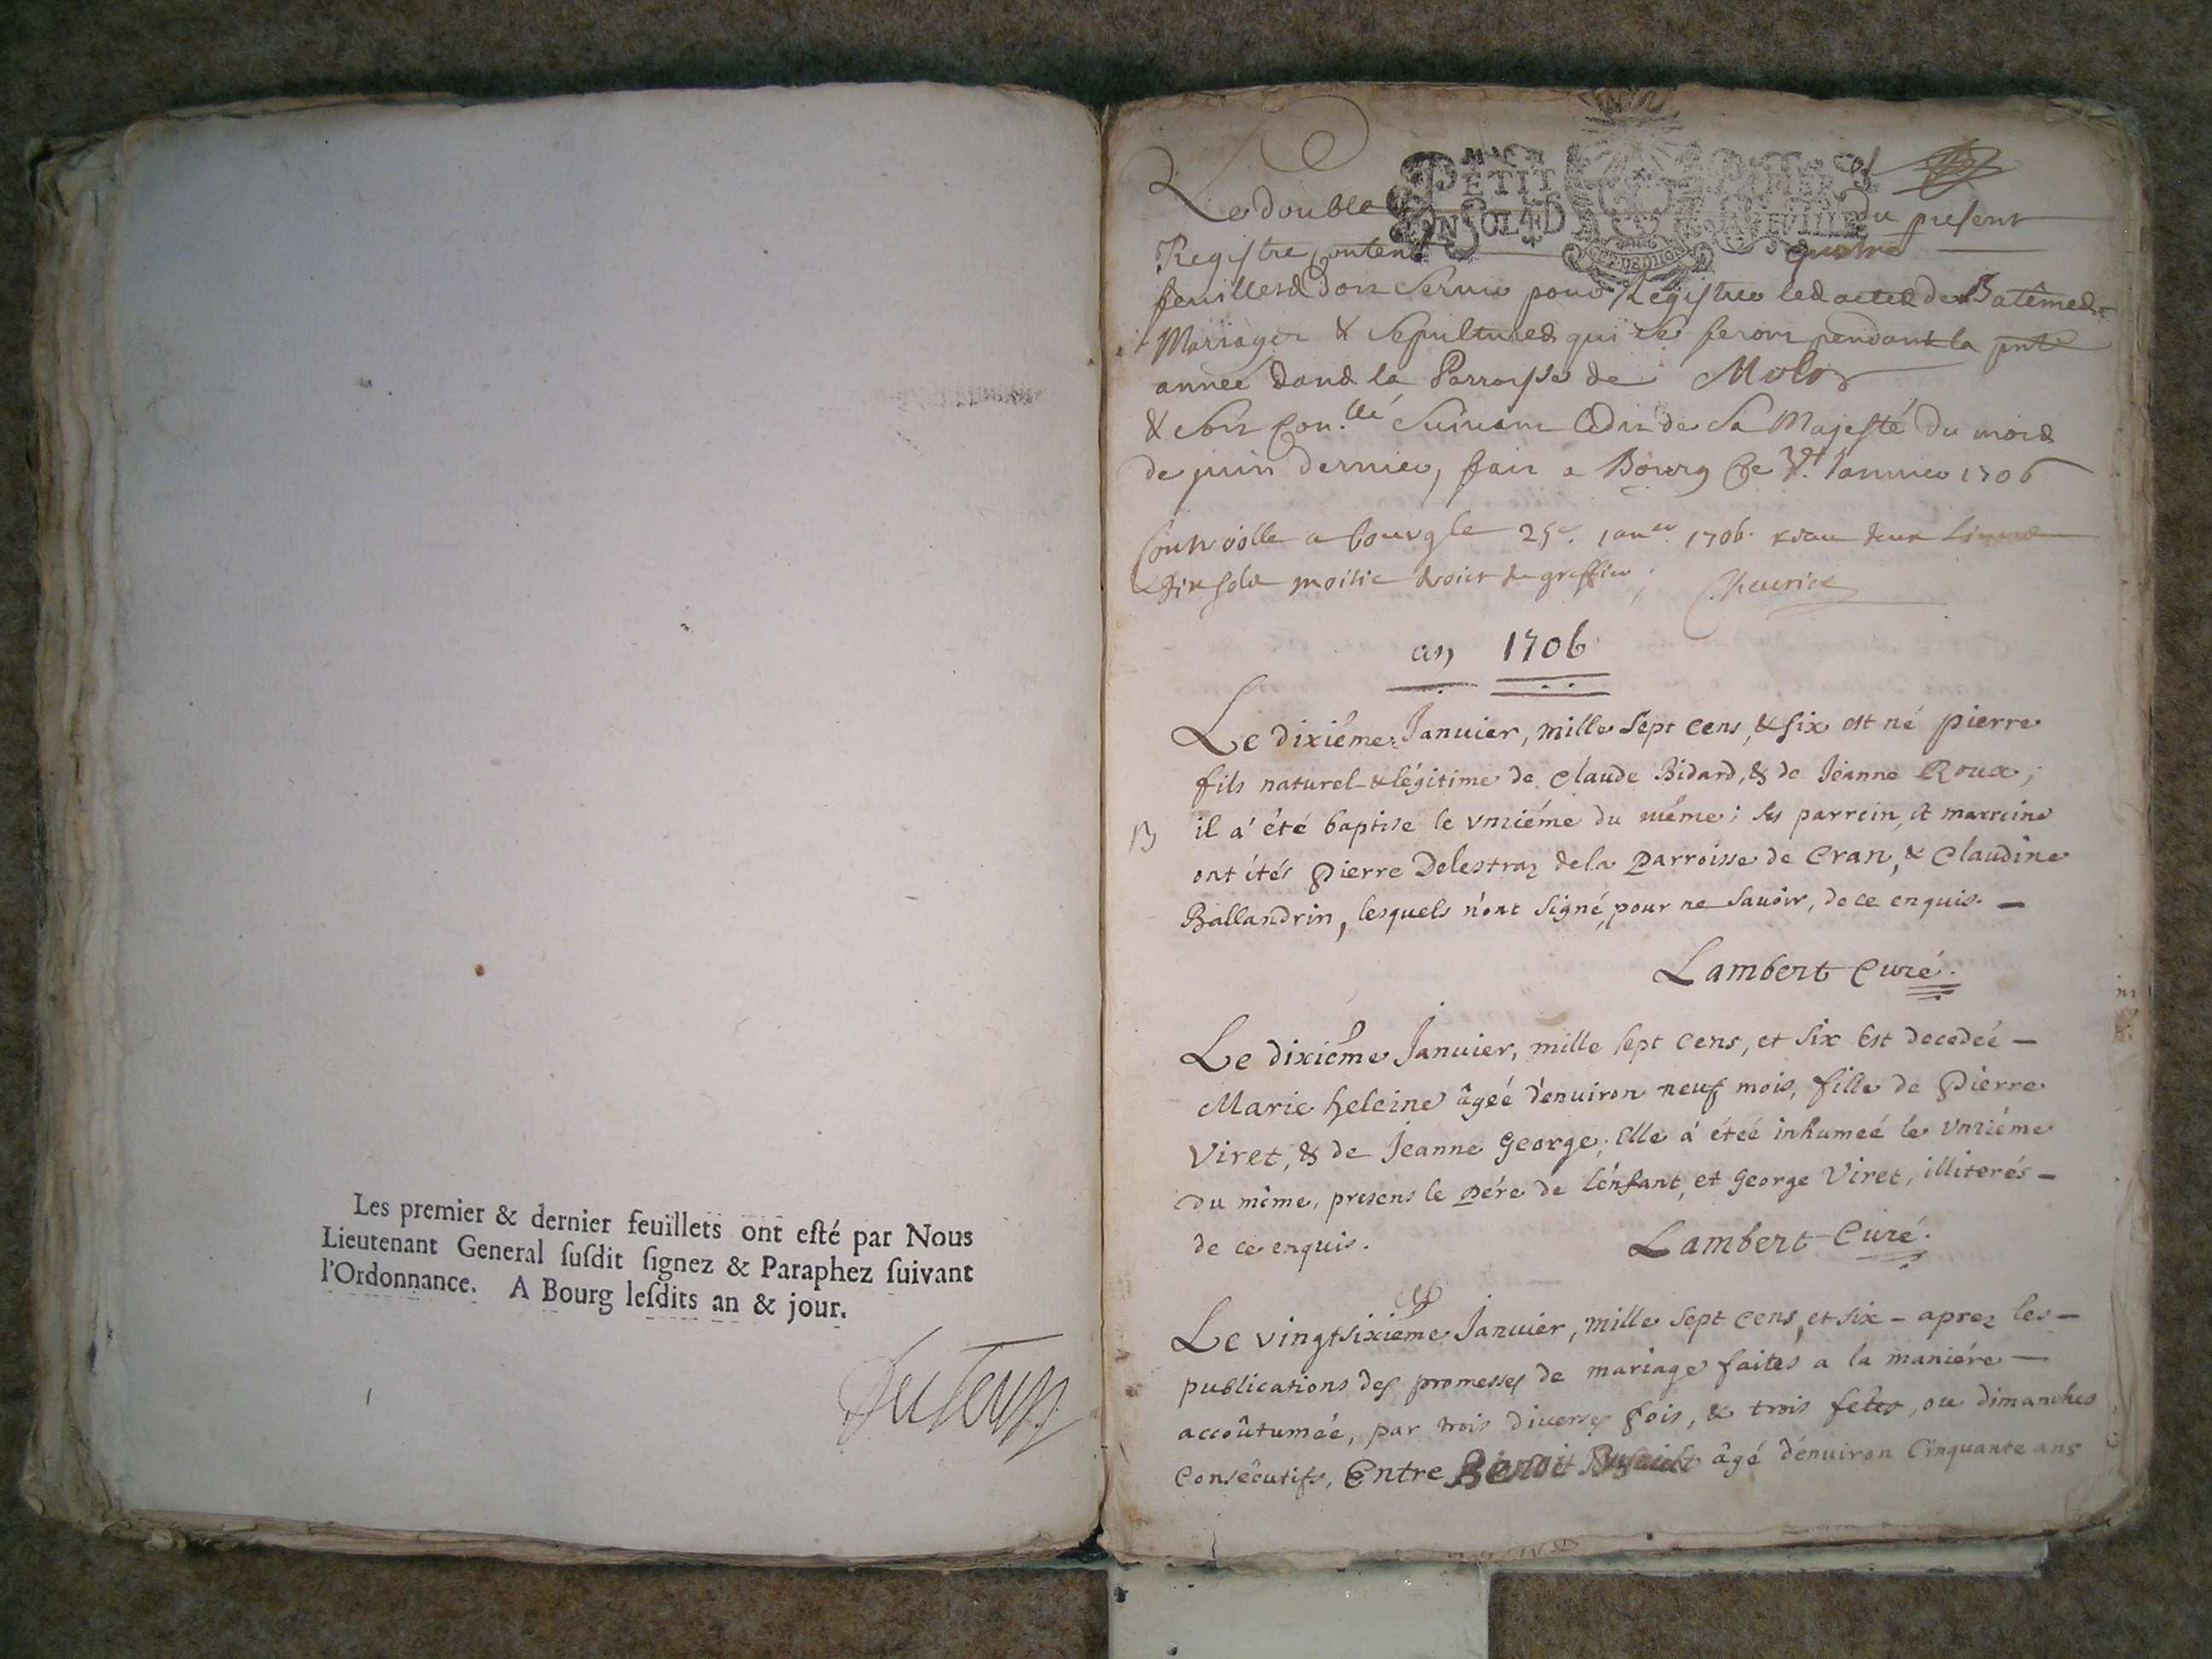 Les premier & dernier feuillets ont esté par Nous
Lieutenant General susdit signez & Paraphez suivant
l'Ordonnance. A Bourg lesdits an & jour.
PETIT
Le double du present
Registre quatre
feuilles doit servir pour Registre les actes de Batêmes
Mariages & Sepultures qui se feront pendant la pnte
année dans la Parroisse de
& suivant de Sa Majesté du mois
de juin dernier, fait a Bourg ce Janvier 1706
a bourg le 25e 1706
six sols moitié droict du greffier
an 1706
Le dixiéme Januier, mille sept cens, & six est né pierre
fils naturel & légitime de Claude Bidard, & de Jeanne Roux;
B
il a' été baptisé le vnziéme du méme; ses parrein, et marreine
ont étés Pierre Delestraz dela Parroisse de Cran, & Claudine
Ballandrin, lesquels n'ont signé, pour ne sauoir, de ce enquis. —
Lambert Curé.
Le dixiéme Januier, mille sept cens, et six est decedeé —
Marie heleine âgeé d'enuiron neuf mois, fille de Pierre
Viret, & de Jeanne George; Elle a' éteé inhumeé le vnziéme
du même, presens le Pére de l'énfant, et George Viret, illiterés —
de ce enquis.
Lambert Curé.
Le vingtsixiéme Januier, mille sept cens, et six — aprez les —
publications des promesses de mariage faites a la maniére —
accoûtumeé, par trois diuerses fois, & trois fetes, ou dimanches
Consécutifs, Entre Benoit âgé d'énuiron Cinquante ans